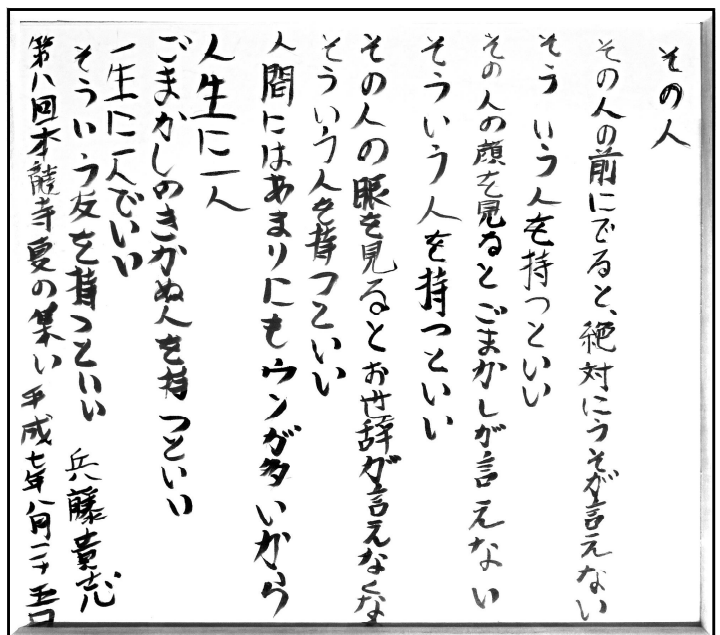 その人
その人の前にでると、絶対にうそが言えない
そういう人を持つといい
その人の顔を見るとごまかしが言えない
そういう人を持つといい
その人の眼を見るとお世辞が言えなくな
そういう人を持つといい
人間にはあまりにもウソが多いから
人生に一人
ごまかしのきかぬ人を持つといい
一生に一人でいい
そういう友を持つといい 兵藤貴志
第八回本龍寺夏の集い 平成七年八月二十五日